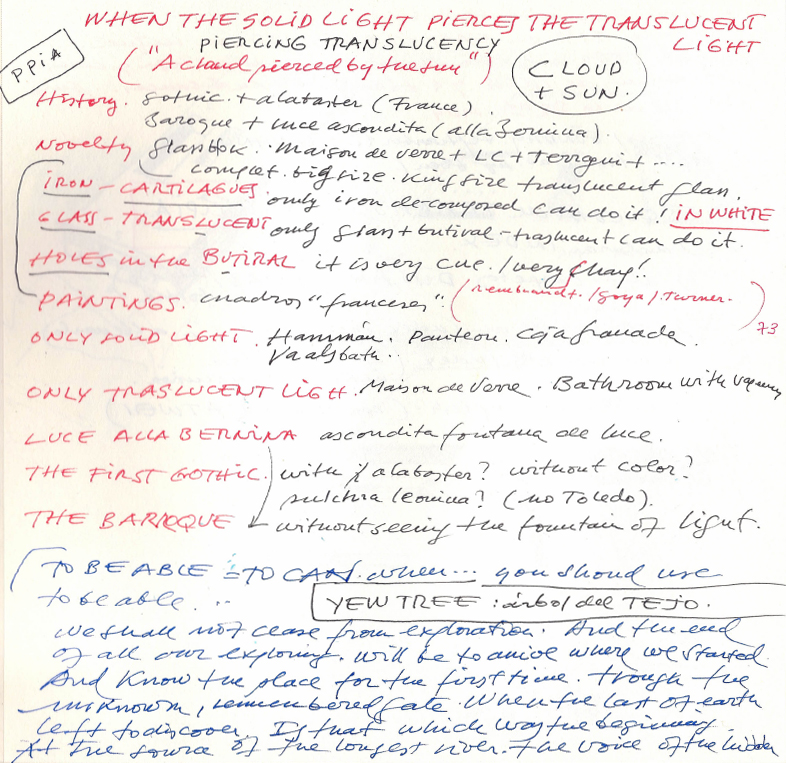 WHEN THE SOLID LIGHT PIERCES THE TRANSLUCENT
LIGHT
PIERCING TRANSLUCENCY
PPIA
("A cloud pierced by the sun")
CLOUD
+ SUN.
History. Gothic + alabaster (France)
Baroque + luce ascondita (alla Bernina).
Novelty glassblok. Maison de verre + LC + Terragni + ....
complet. big size. King size translucent glass.
IRON - CARTILAGUES. only iron de-composed can do it! IN WHITE
GLASS - TRANSLUCENT only glass + butiral - traslucent can do it.
HOLES in the BUTIRAL it is very cue. / very cheap!
PAINTINGS. cuadros "franceses". (Rembrandt. / Goya / Turner.
73
ONLY SOLID LIGHT. Hammán. Panteon. Caja Granada.
Vaalsbath..
ONLY TRASLUCENT LIGH. Maison de Verre. Bathroom with
LUCE ALLA BERNINA ascondita fontana de luce.
THE FIRST GOTHIC. with alabaster? without color?
pulchra leonina? (no Toledo).
THE BAROQUE without seeing the fountain of light.
TO BE ABLE = TO CAN. when... you should use
to be able. ...
YEW TREE : árbol del TEJO.
We shall not cease from exploration. And the end
of all our exploring. will be to arrive where we started.
And Know the place for the first time. Trough the
unknown, remembered gate. When the last of earth
left to discover. Is that which was the beginning.
At the source of the longest river. The voice of the hidden